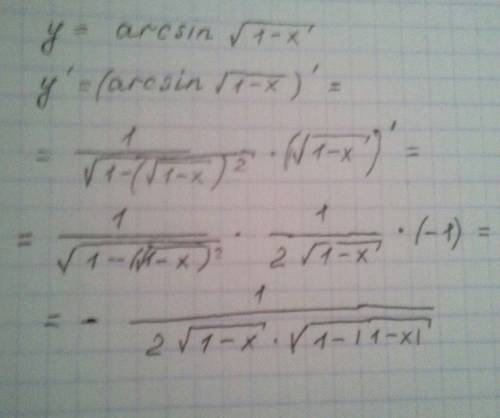 y = arcsin √(1-x)
y' = (arcsin √(1-x))' =
= 1/√(1-(√(1-x))²) · (√(1-x))' =
= 1/√(1-(√(1-x))²) · 1/(2√(1-x)) · (-1) =
= - 1/(2√(1-x) · √(1-|1-x|))